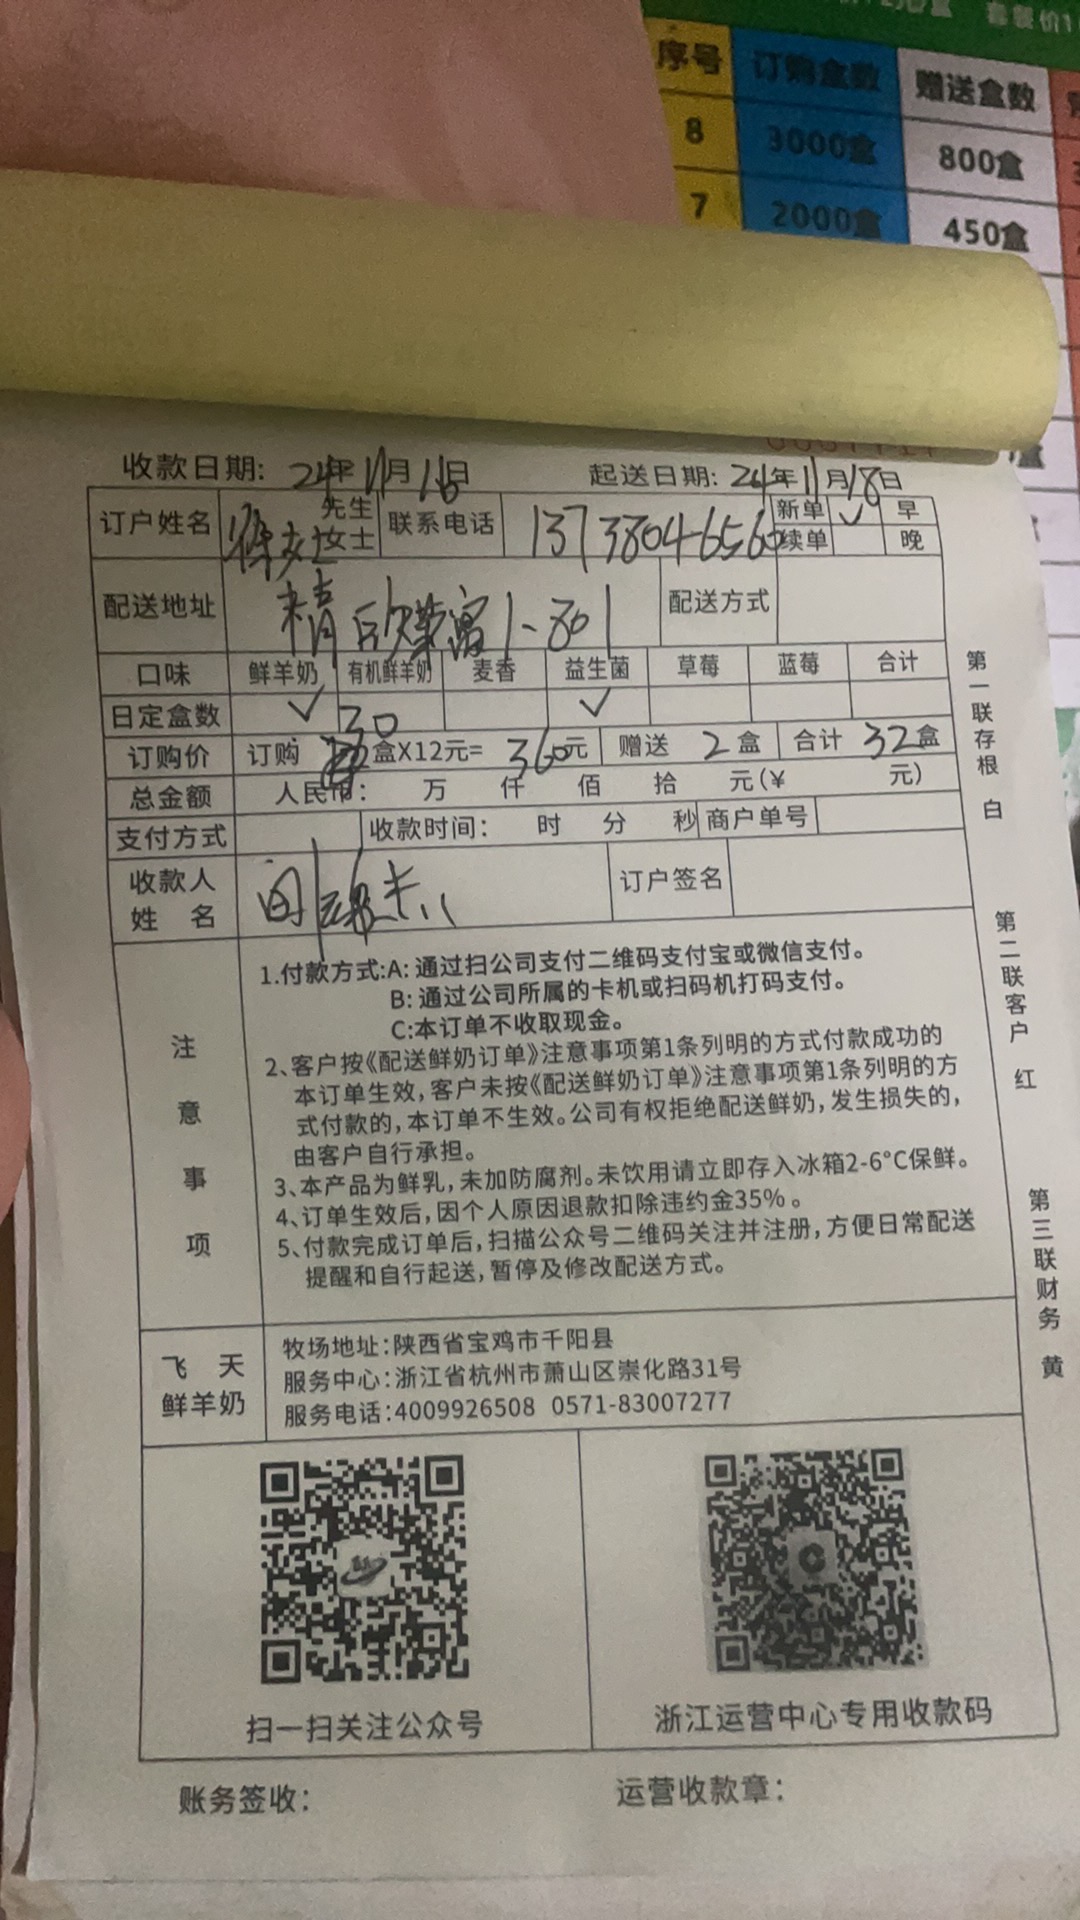 套餐价1
序号 订购盒数 赠送盒数
8 3000盒 800盒
7 2000盒 450盒
收款日期: 24年11月16日 起送日期: 24年11月18日
订户姓名 徐女士 先生 女士 联系电话 13738046560 新单 ✓ 早
续单 晚
配送地址 1-801 配送方式
口味 鲜羊奶 有机鲜羊奶 麦香 益生菌 草莓 蓝莓 合计
日定盒数 ✓ ✓
订购价 订购 30 盒X12元= 360元 赠送 2 盒 合计 32盒
总金额 人民币: 万 仟 佰 拾 元(¥ 元)
支付方式 收款时间: 时 分 秒 商户单号
收款人 姓 名 订户签名
注意事项
1.付款方式:A: 通过扫公司支付二维码支付宝或微信支付。
B: 通过公司所属的卡机或扫码机打码支付。
C:本订单不收取现金。
2、客户按《配送鲜奶订单》注意事项第1条列明的方式付款成功的
本订单生效,客户未按《配送鲜奶订单》注意事项第1条列明的方
式付款的,本订单不生效。公司有权拒绝配送鲜奶,发生损失的,
由客户自行承担。
3、本产品为鲜乳,未加防腐剂。未饮用请立即存入冰箱2-6°C保鲜。
4、订单生效后,因个人原因退款扣除违约金35%。
5、付款完成订单后,扫描公众号二维码关注并注册,方便日常配送
提醒和自行起送,暂停及修改配送方式。
飞天
鲜羊奶
牧场地址:陕西省宝鸡市千阳县
服务中心:浙江省杭州市萧山区崇化路31号
服务电话:4009926508 0571-83007277
扫一扫关注公众号 浙江运营中心专用收款码
账务签收: 运营收款章:
第一联存根 白
第二联客户 红
第三联财务 黄